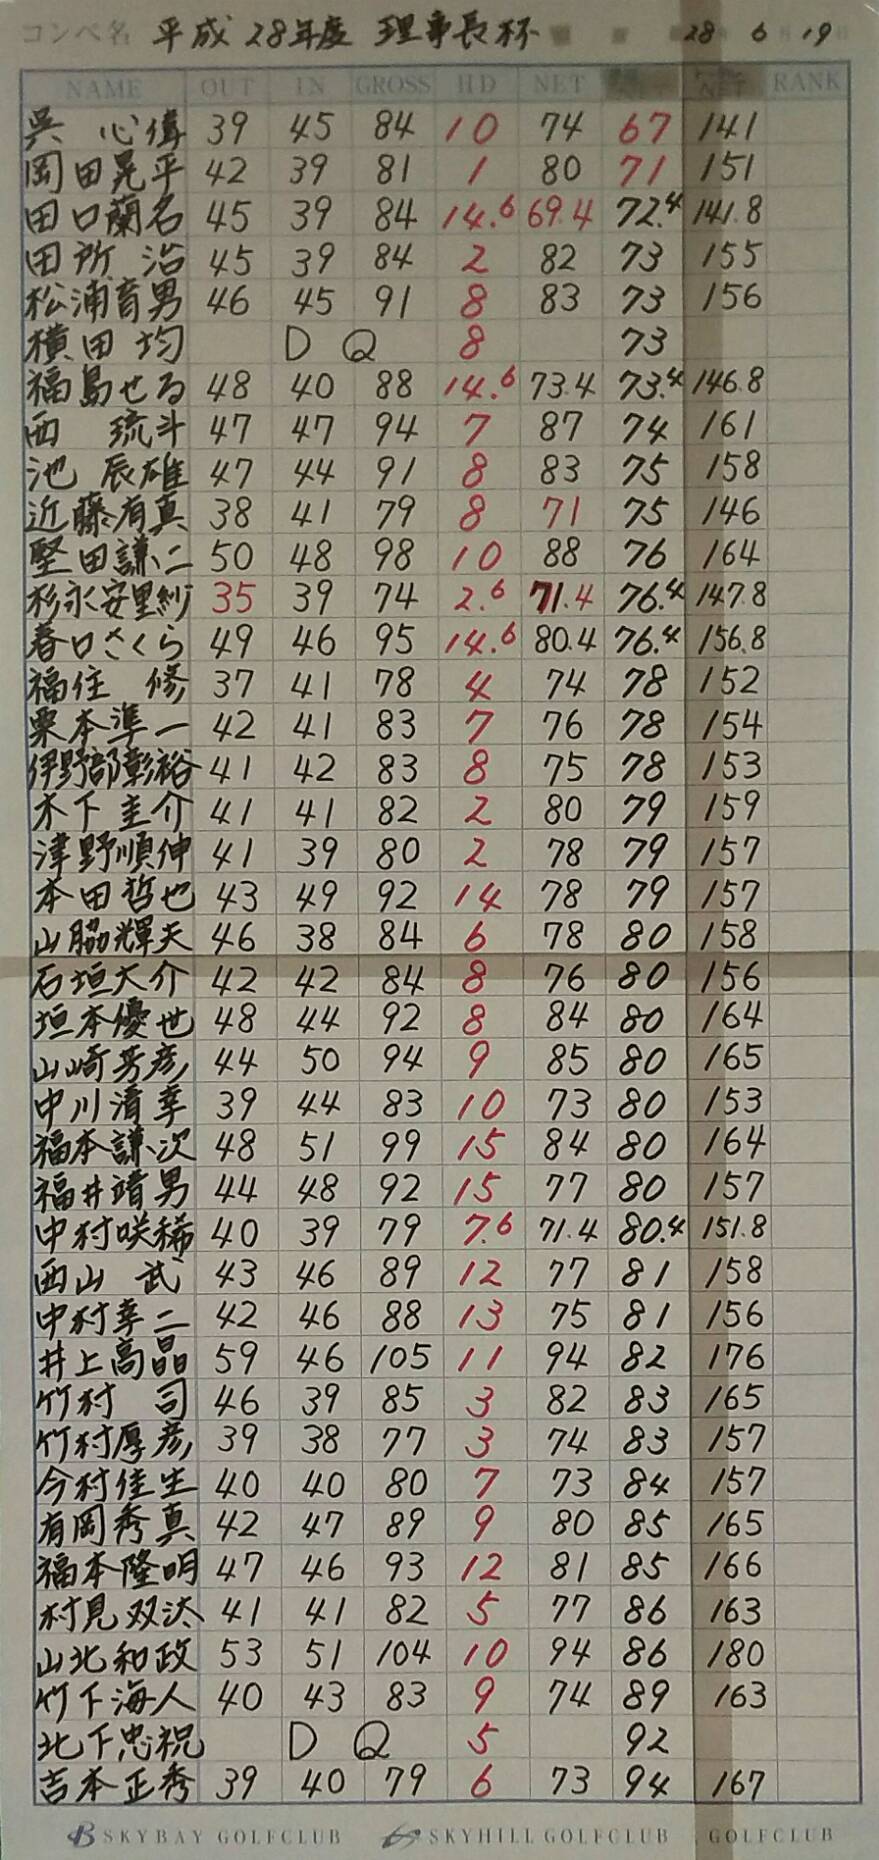 コンペ名 平成28年度 理事長杯 28 6 19
NAME OUT IN GROSS HD NET NET RANK
呉 心偉 39 45 84 10 74 67 141
岡田晃平 42 39 81 1 80 71 151
田口蘭名 45 39 84 14.6 69.4 72.4 141.8
田所 治 45 39 84 2 82 73 155
松浦育男 46 45 91 8 83 73 156
横田 均 D Q 8 73
福島せる 48 40 88 14.6 73.4 73.4 146.8
西 琉斗 47 47 94 7 87 74 161
池 辰雄 47 44 91 8 83 75 158
近藤有真 38 41 79 8 71 75 146
堅田謙二 50 48 98 10 88 76 164
杉永安里紗 35 39 74 2.6 71.4 76.4 147.8
春口さくら 49 46 95 14.6 80.4 76.4 156.8
福住 修 37 41 78 4 74 78 152
栗本準一 42 41 83 7 76 78 154
伊野部彰裕 41 42 83 8 75 78 153
木下圭介 41 41 82 2 80 79 159
津野順伸 41 39 80 2 78 79 157
本田哲也 43 49 92 14 78 79 157
山脇輝夫 46 38 84 6 78 80 158
石垣大介 42 42 84 8 76 80 156
垣本優世 48 44 92 8 84 80 164
山崎芳彦 44 50 94 9 85 80 165
中川清幸 39 44 83 10 73 80 153
福本謙次 48 51 99 15 84 80 164
福井靖男 44 48 92 15 77 80 157
中村咲稀 40 39 79 7.6 71.4 80.4 151.8
西山 武 43 46 89 12 77 81 158
中村幸二 42 46 88 13 75 81 156
井上高晶 59 46 105 11 94 82 176
竹村 司 46 39 85 3 82 83 165
竹村厚彦 39 38 77 3 74 83 157
今村佳生 40 40 80 7 73 84 157
有岡秀真 42 47 89 9 80 85 165
福本隆明 47 46 93 12 81 85 166
村見双汰 41 41 82 5 77 86 163
山北和政 53 51 104 10 94 86 180
竹下海人 40 43 83 9 74 89 163
北下忠祝 D Q 5 92
吉本正秀 39 40 79 6 73 94 167
SKYBAY GOLFCLUB SKYHILL GOLFCLUB GOLFCLUB